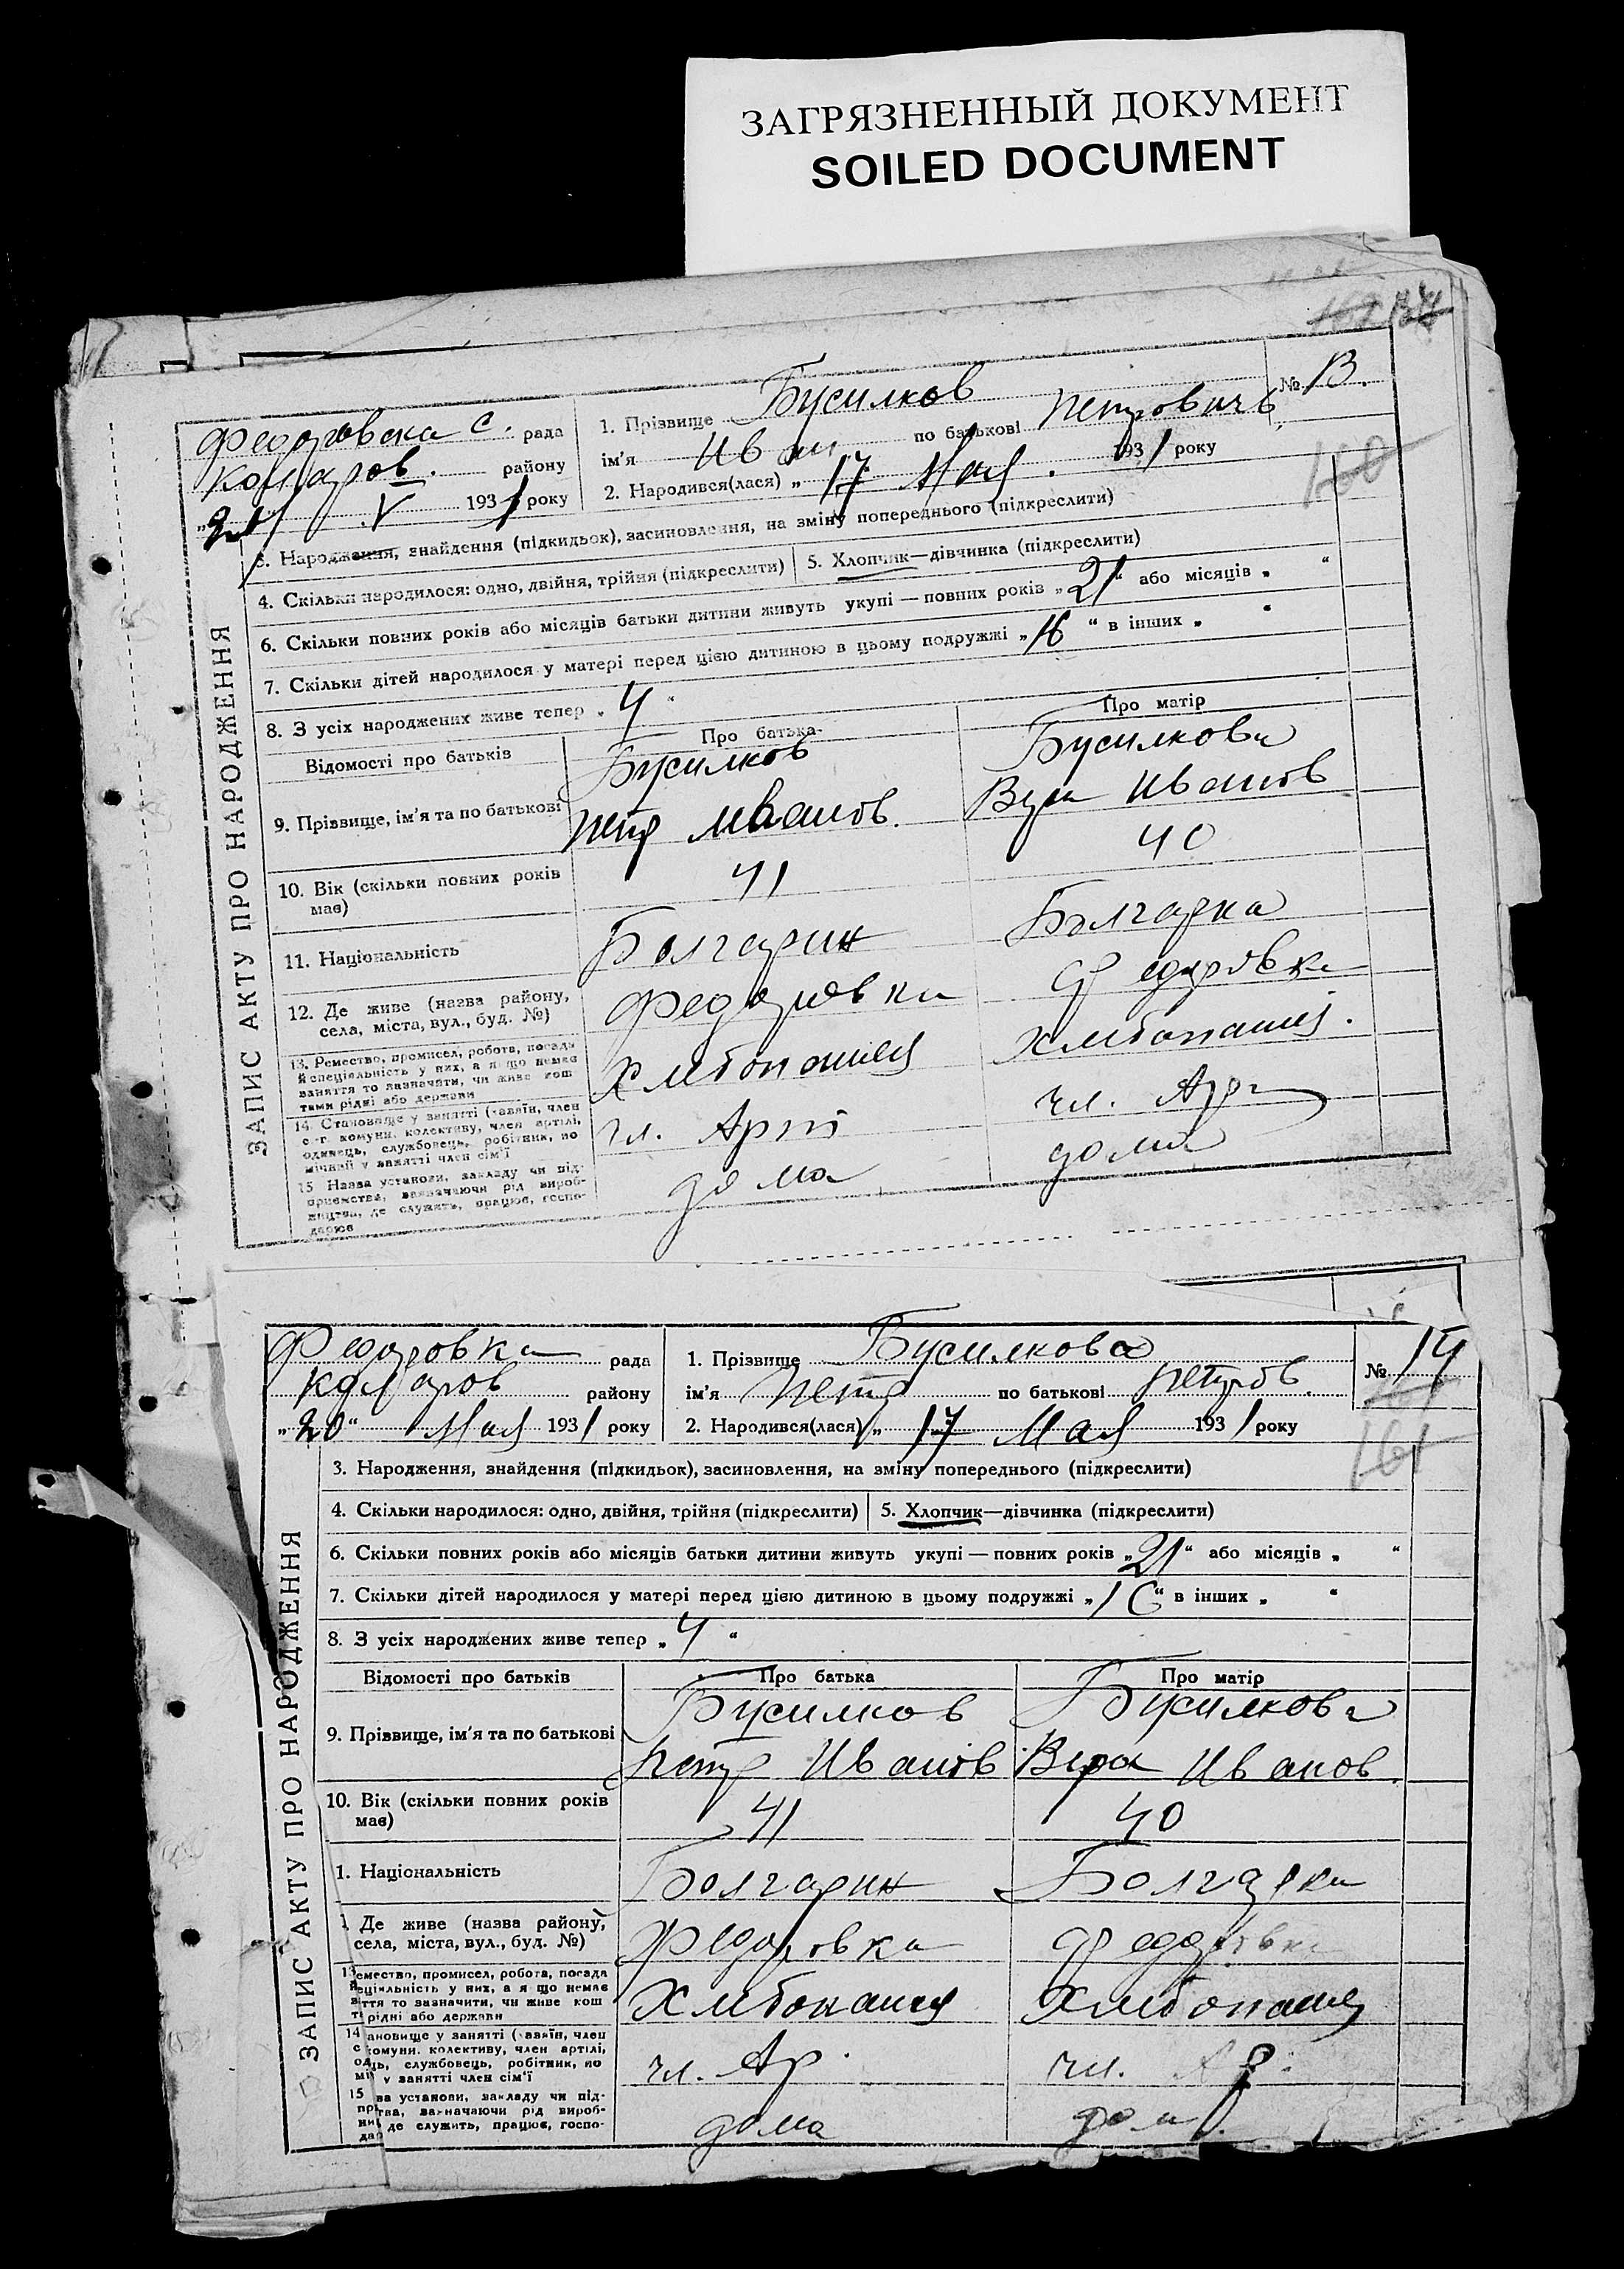 ЗАГРЯЗНЕННЫЙ ДОКУМЕНТ
SOILED DOCUMENT
ЗАПИС АКТУ ПРО НАРОДЖЕННЯ
№ 13.
Федоровска с. рада
Комаров. району
V 1931 року
1. Прізвище Бусилков
ім'я Иван по батькові Петрович
2. Народився(лася) „17 Мая. 1931 року
160
3. Народження, знайдення (підкидьок), засиновлення, на зміну попереднього (підкреслити)
4. Скільки народилося: одно, двійня, трійня (підкреслити) 5. Хлопчик—дівчинка (підкреслити)
6. Скільки повних років або місяців батьки дитини живуть укупі — повних років „21“ або місяців „ “
7. Скільки дітей народилося у матері перед цією дитиною в цьому подружжі „16 “ в інших „ “
8. З усіх народжених живе тепер „ 4 “
Відомості про батьків Про батька Про матір
9. Прізвище, ім'я та по батькові
Бусилков Бусилкова
Петр Иванов. Вера Иванов
10. Вік (скільки повних років має) 41 40
11. Національність Болгарин Болгарка
12. Де живе (назва району, села, міста, вул., буд. №) Федоровка Федоровка
13. Ремество, промисел, робота, посада
й спеціяльність у них, а якщо немає
заняття то зазначити, чи живе кош
тами рідні або держави
Хлебопашец Хлебопашец.
14. Становище у занятті (хазяїн, член
с.-г. комуни, колективу, член артілі,
одинець, службовець, робітник, по
мічний у занятті член сім'ї
чл. Арт чл. Арт
15 Назва установи, закладу чи під-
приємства, зазначаючи рід вироб-
ництва, де служить, працює, госпо-
дарює
дома дома
ЗАПИС АКТУ ПРО НАРОДЖЕННЯ
№ 14
Федоровка рада
Комаров району
„20“ Мая 1931 року
1. Прізвище Бусилкова
ім'я Петр по батькові Петров.
2. Народився(лася) „ 17 Мая 1931 року
161
3. Народження, знайдення (підкидьок), засиновлення, на зміну попереднього (підкреслити)
4. Скільки народилося: одно, двійня, трійня (підкреслити) 5. Хлопчик—дівчинка (підкреслити)
6. Скільки повних років або місяців батьки дитини живуть укупі — повних років „21“ або місяців „ “
7. Скільки дітей народилося у матері перед цією дитиною в цьому подружжі „16“ в інших „ “
8. З усіх народжених живе тепер „ 4 “
Відомості про батьків Про батька Про матір
9. Прізвище, ім'я та по батькові
Бусилков Бусилкова
Петр Иванов Вера Иванов.
10. Вік (скільки повних років має) 41 40
1. Національність Болгарин Болгарка
Де живе (назва району, села, міста, вул., буд. №) Федоровка Федоровка
емество, промисел, робота, посада
еціяльність у них, а якщо немає
ття то зазначити, чи живе кош
рідні або держави
Хлебопашец Хлебопашец
14 ановище у занятті (хазяїн, член
с комуни. колективу, член артілі,
од ць, службовець, робітник, по
мі у занятті член сім'ї
чл. Ар. чл. Ар.
15 ва установи, закладу чи під-
пр тва, зазначаючи рід вироб-
ни де служить, працює, госпо-
дар
дома дома